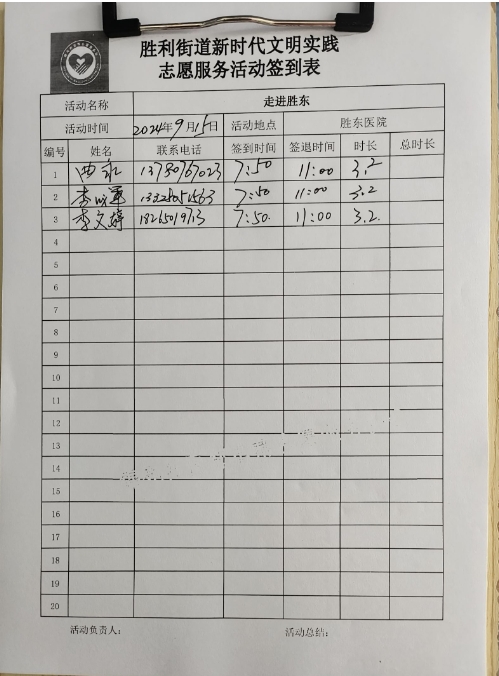 胜利街道新时代文明实践
志愿服务活动签到表
活动名称 走进胜东
活动时间 2024年9月15日 活动地点 胜东医院
编号 姓名 联系电话 签到时间 签退时间 时长 总时长
1 13780767023 7:50 11:00 3.2
2 李 7:50 11:00 3.2
3 李文婷 18265019713 7:50 11:00 3.2
4
5
6
7
8
9
10
11
12
13
14
15
16
17
18
19
20
活动负责人: 活动总结: